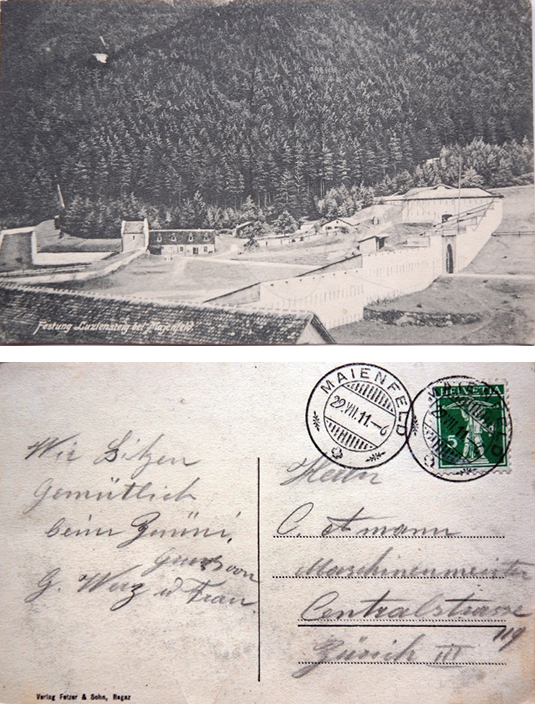 Festung „Luziensteig bei Maienfeld."
MAIENFELD
29.VII.11.–6
HELVETIA
5
Wir Sitzen
Gemütlich
beim Znüni,
Gruss von
G. Werz u Frau.
Herrn
C. Amann
Maschinenmeister
Centralstrasse
119
Zürich III
Verlag Fetzer & Sohn, Ragaz